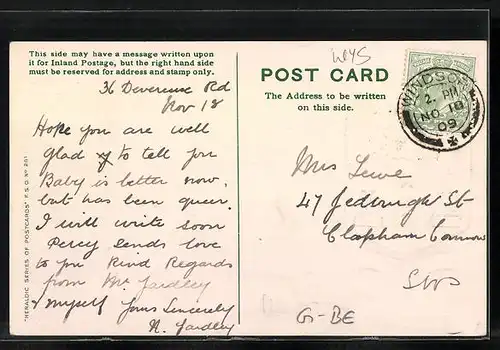 This side may have a message written upon
it for Inland Postage, but the right hand side
must be reserved for address and stamp only.
36 Devereux Rd
Nov 18
Hope you are well
glad to tell you
Baby is better now,
but has been queer.
I will write soon
Percy sends love
to you Kind Regards
from Mr Yardley
& myself Yours Sincerely
N. Yardley
"HERALDIC SERIES OF POSTCARDS" F.S.O. No 201
POST CARD
The Address to be written
on this side.
WINDSOR
2. PM
NO 18
09
Mrs Lewe
47 Jedburgh St
Clapham Common
SW
G-BE